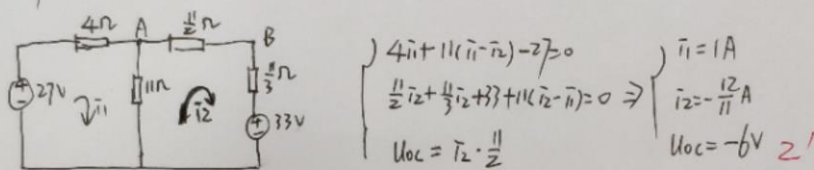 4Ω A 11/2 Ω B
27V i1 11Ω i2 11/3 Ω 33V
4i1+11(i1-i2)-27=0
11/2 i2+11/3 i2+33+11(i2-i1)=0 ⇒
Uoc = i2·11/2
i1=1A
i2=-12/11 A
Uoc=-6V 2'